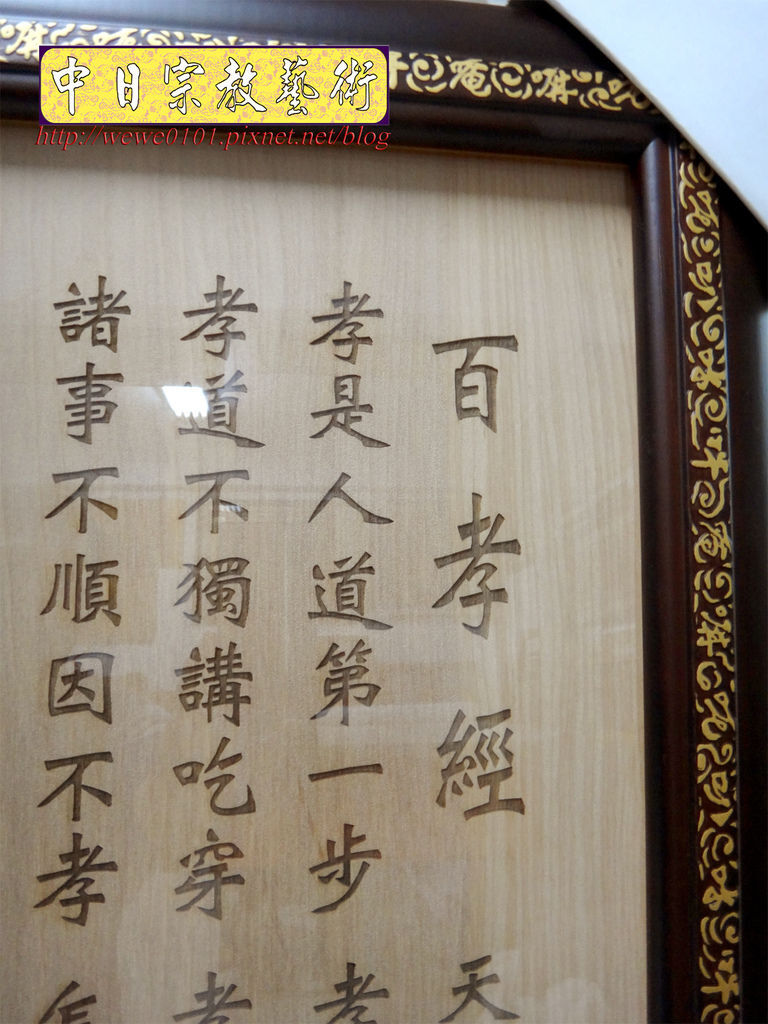 中日宗教藝術
http://wewe0101.pixnet.net/blog
百孝經 天
孝是人道第一步 孝
孝道不獨講吃穿 孝
諸事不順因不孝 怎